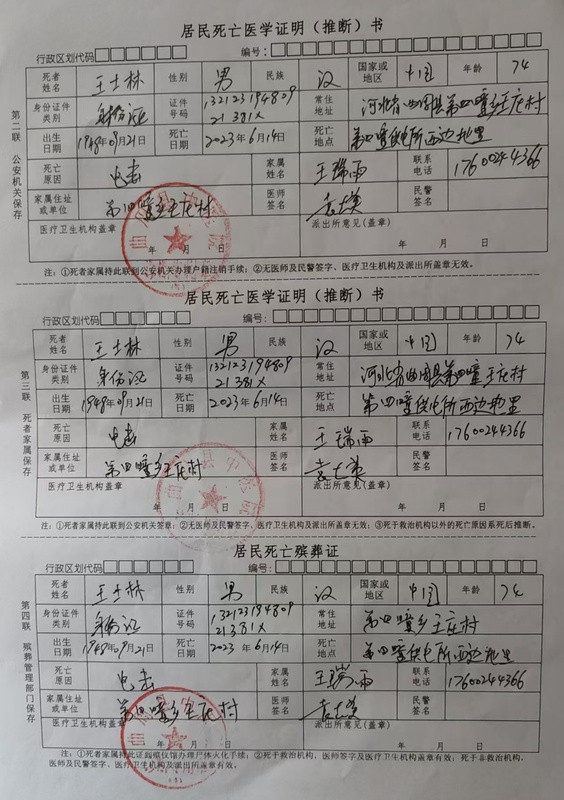 居民死亡医学证明（推断）书
行政区划代码 编号：
死者姓名 王士林 性别 男 民族 汉 国家或地区 中国 年龄 74
身份证件类别 身份证 证件号码 13212319480921381X 常住地址 河北省曲周县第四疃乡王庄村
出生日期 1948年09月21日 死亡日期 2023年6月14日 死亡地点 第四疃供电所西边地里
死亡原因 电击 家属姓名 王瑞雨 联系电话 17600244366
家属住址或单位 第四疃乡王庄村 医师签名 民警签名
医疗卫生机构盖章 派出所意见（盖章）
年 月 日 年 月 日
第二联 公安机关保存
注：①死者家属持此联到公安机关办理户籍注销手续；②无医师及民警签字、医疗卫生机构及派出所盖章无效。
居民死亡医学证明（推断）书
行政区划代码 编号：
死者姓名 王士林 性别 男 民族 汉 国家或地区 中国 年龄 74
身份证件类别 身份证 证件号码 13212319480921381X 常住地址 河北省曲周县第四疃王庄村
出生日期 1948年09月21日 死亡日期 2023年6月14日 死亡地点 第四疃供电所西边地里
死亡原因 电击 家属姓名 王瑞雨 联系电话 17600244366
家属住址或单位 第四疃乡王庄村 医师签名 民警签名
医疗卫生机构盖章 派出所意见（盖章）
年 月 日 年 月 日
第三联 死者家属保存
注：①死者家属持此联到公安机关签章；②无医师及民警签字、医疗卫生机构及派出所盖章无效；③死于救治机构以外的死亡原因系死后推断。
居民死亡殡葬证
行政区划代码 编号：
死者姓名 王士林 性别 男 民族 汉 国家或地区 中国 年龄 74
身份证件类别 身份证 证件号码 13212319480921381X 常住地址 第四疃乡王庄村
出生日期 1948年09月21日 死亡日期 2023年6月14日 死亡地点 第四疃供电所西边地里
死亡原因 电击 家属姓名 王瑞雨 联系电话 17600244366
家属住址或单位 第四疃乡王庄村 医师签名 民警签名
医疗卫生机构盖章 派出所意见（盖章）
年 月 日 年 月 日
第四联 殡葬管理部门保存
注：①死者家属持此证到殡仪馆办理尸体火化手续；②死于救治机构，医师签字及医疗卫生机构盖章有效；死于非救治机构，
医师及民警签字、医疗卫生机构及派出所盖章有效。